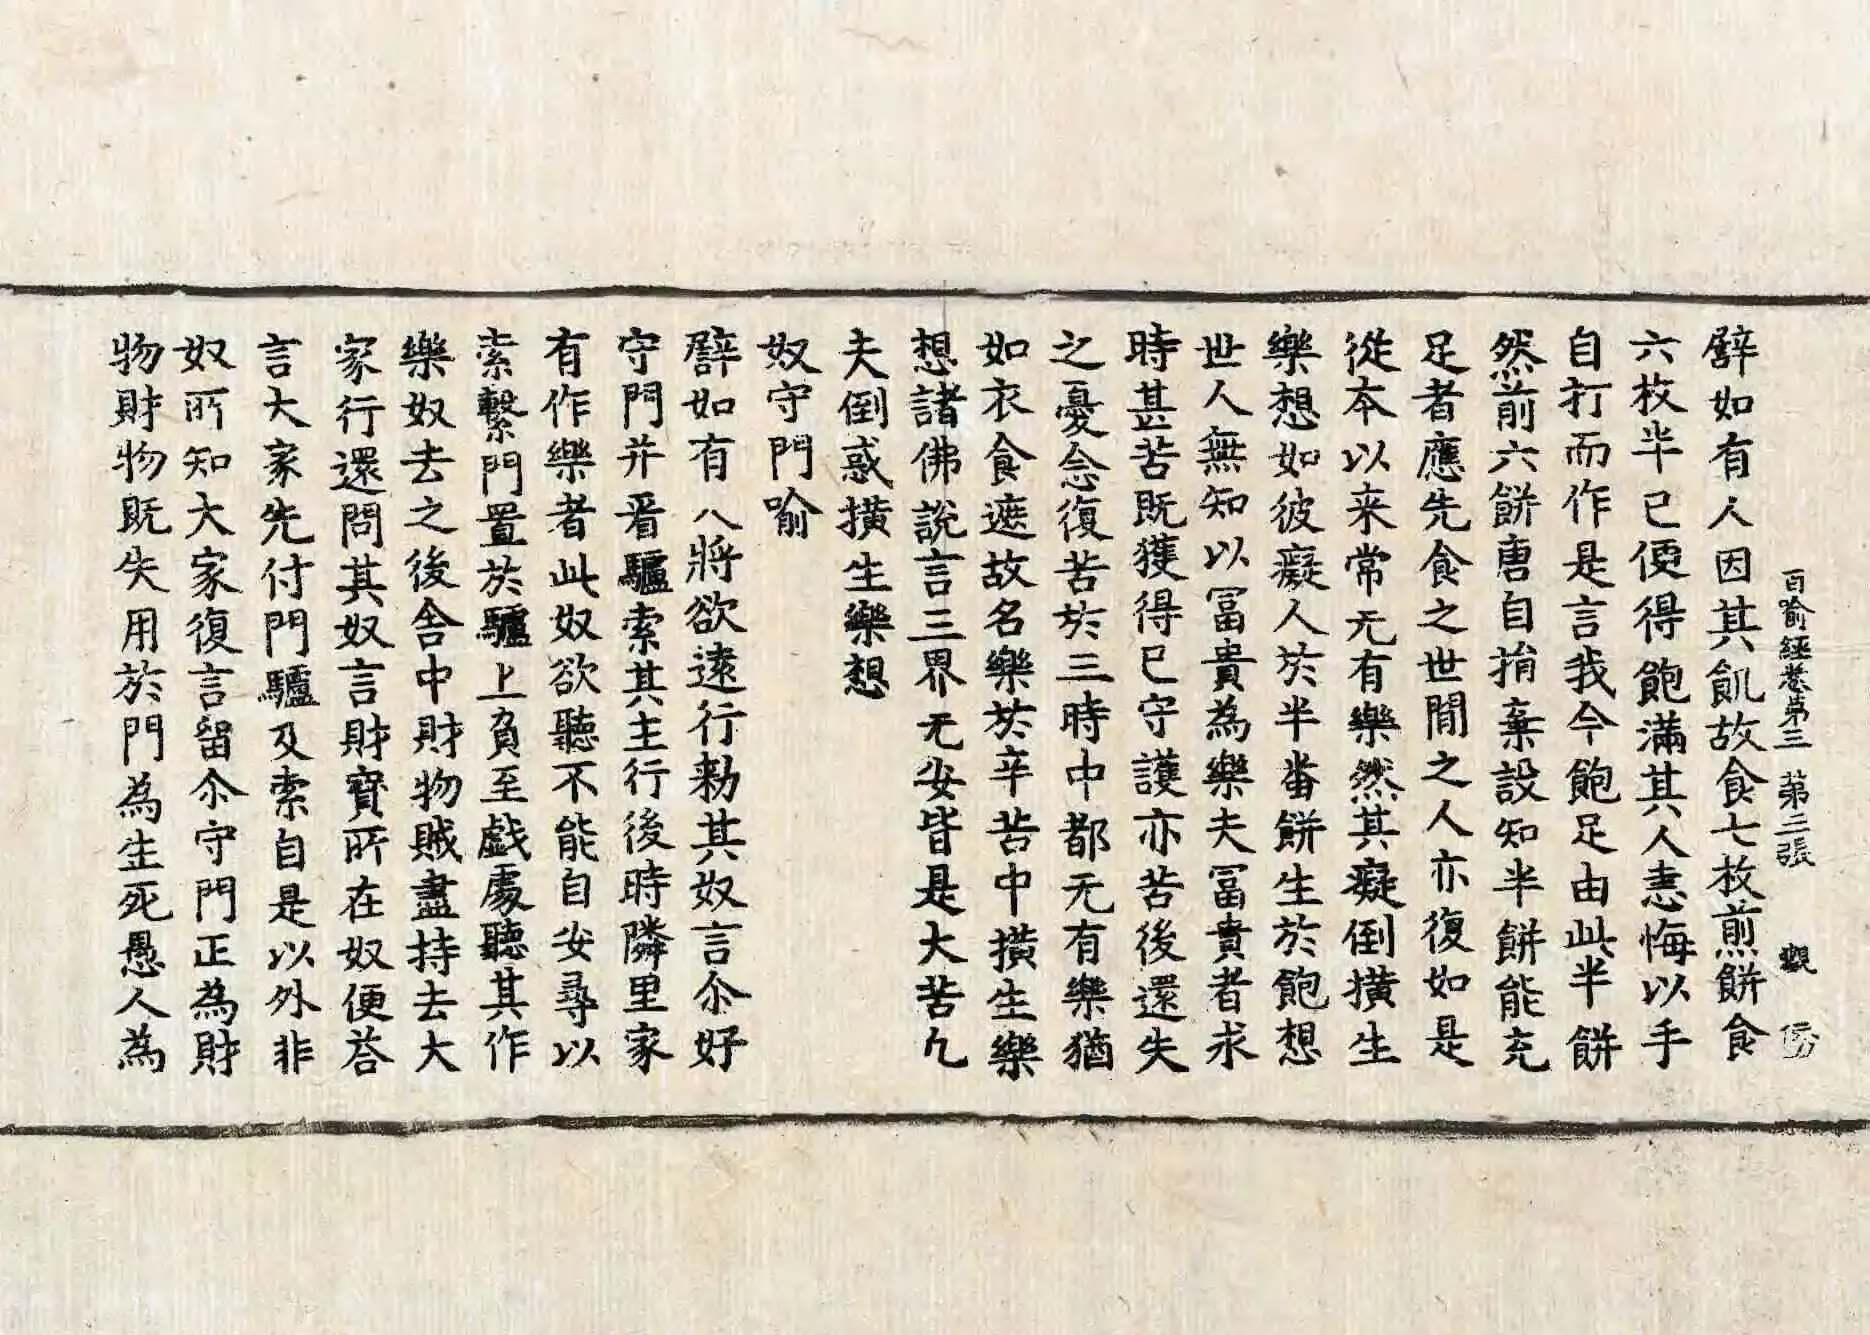 百喻經卷第三 第二張 觀
譬如有人因其飢故食七枚煎餅食
六枚半已便得飽滿其人恚悔以手
自打而作是言我今飽足由此半餅
然前六餅唐自捐棄設知半餅能充
足者應先食之世間之人亦復如是
從本以来常无有樂然其癡倒橫生
樂想如彼癡人於半番餅生於飽想
世人無知以冨貴為樂夫冨貴者求
時甚苦既獲得已守護亦苦後還失
之憂念復苦於三時中都无有樂猶
如衣食遮故名樂於辛苦中橫生樂
想諸佛說言三界无安皆是大苦凢
夫倒惑橫生樂想
奴守門喻
譬如有人將欲遠行勑其奴言尒好
守門并㸔驢索其主行後時隣里家
有作樂者此奴欲聽不能自安尋以
索繫門置於驢上負至戲處聽其作
樂奴去之後舍中財物賊盡持去大
家行還問其奴言財寳所在奴便荅
言大家先付門驢及索自是以外非
奴所知大家復言留尒守門正為財
物財物既失用於門為生死愚人為